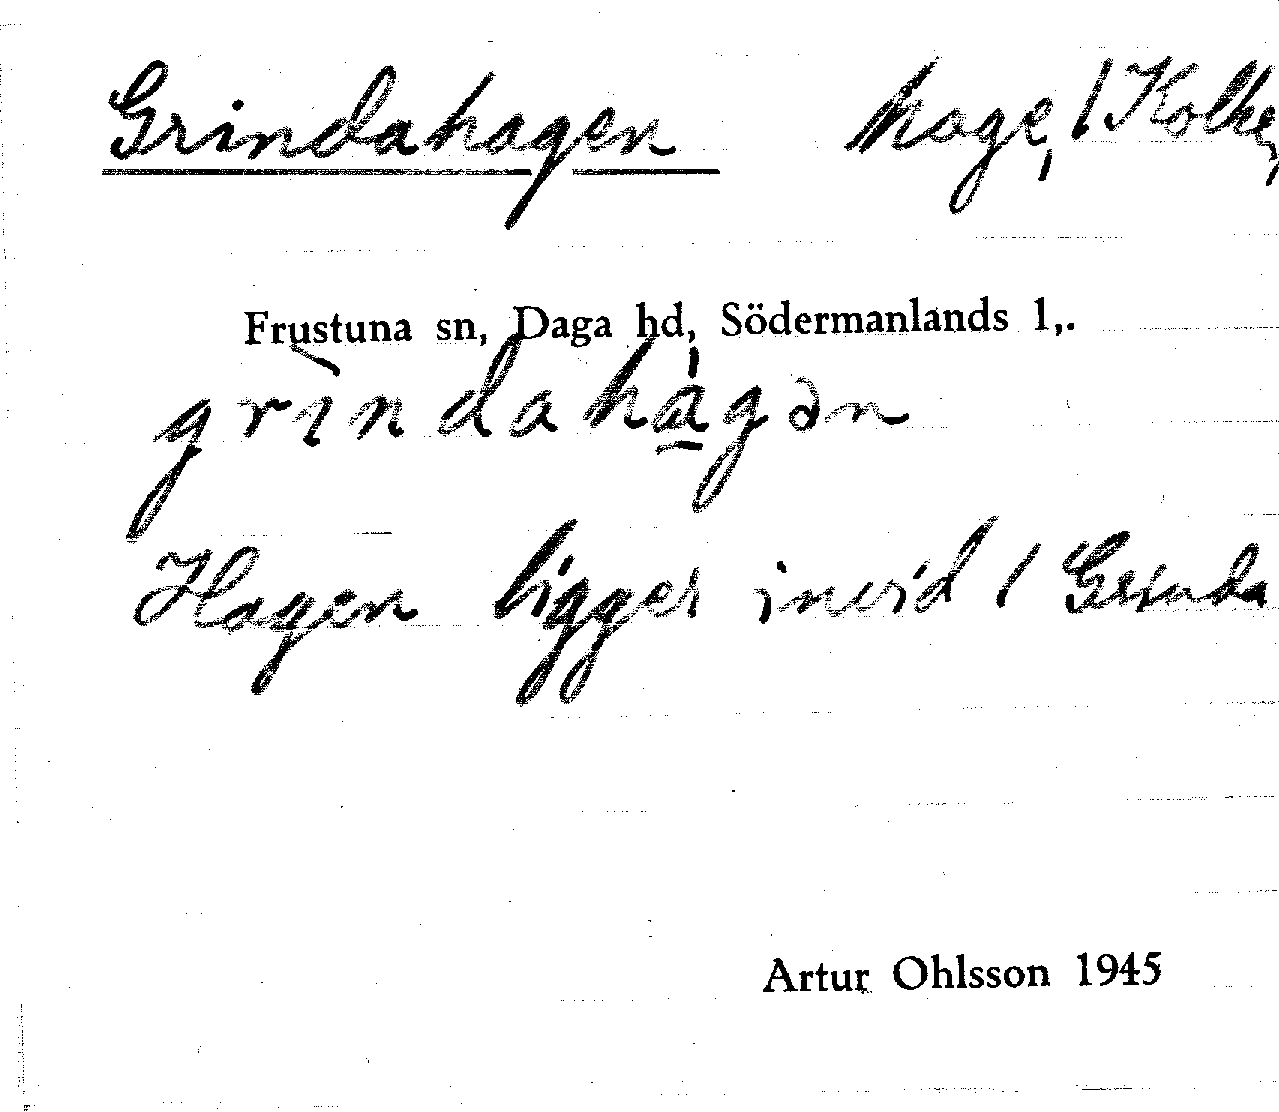 Grindahagen hage, / Kolke,
Frustuna sn, Daga hd, Södermanlands l,.
grìndahá̱gən
Hagen ligger invid / Grinda
Artur Ohlsson 1945